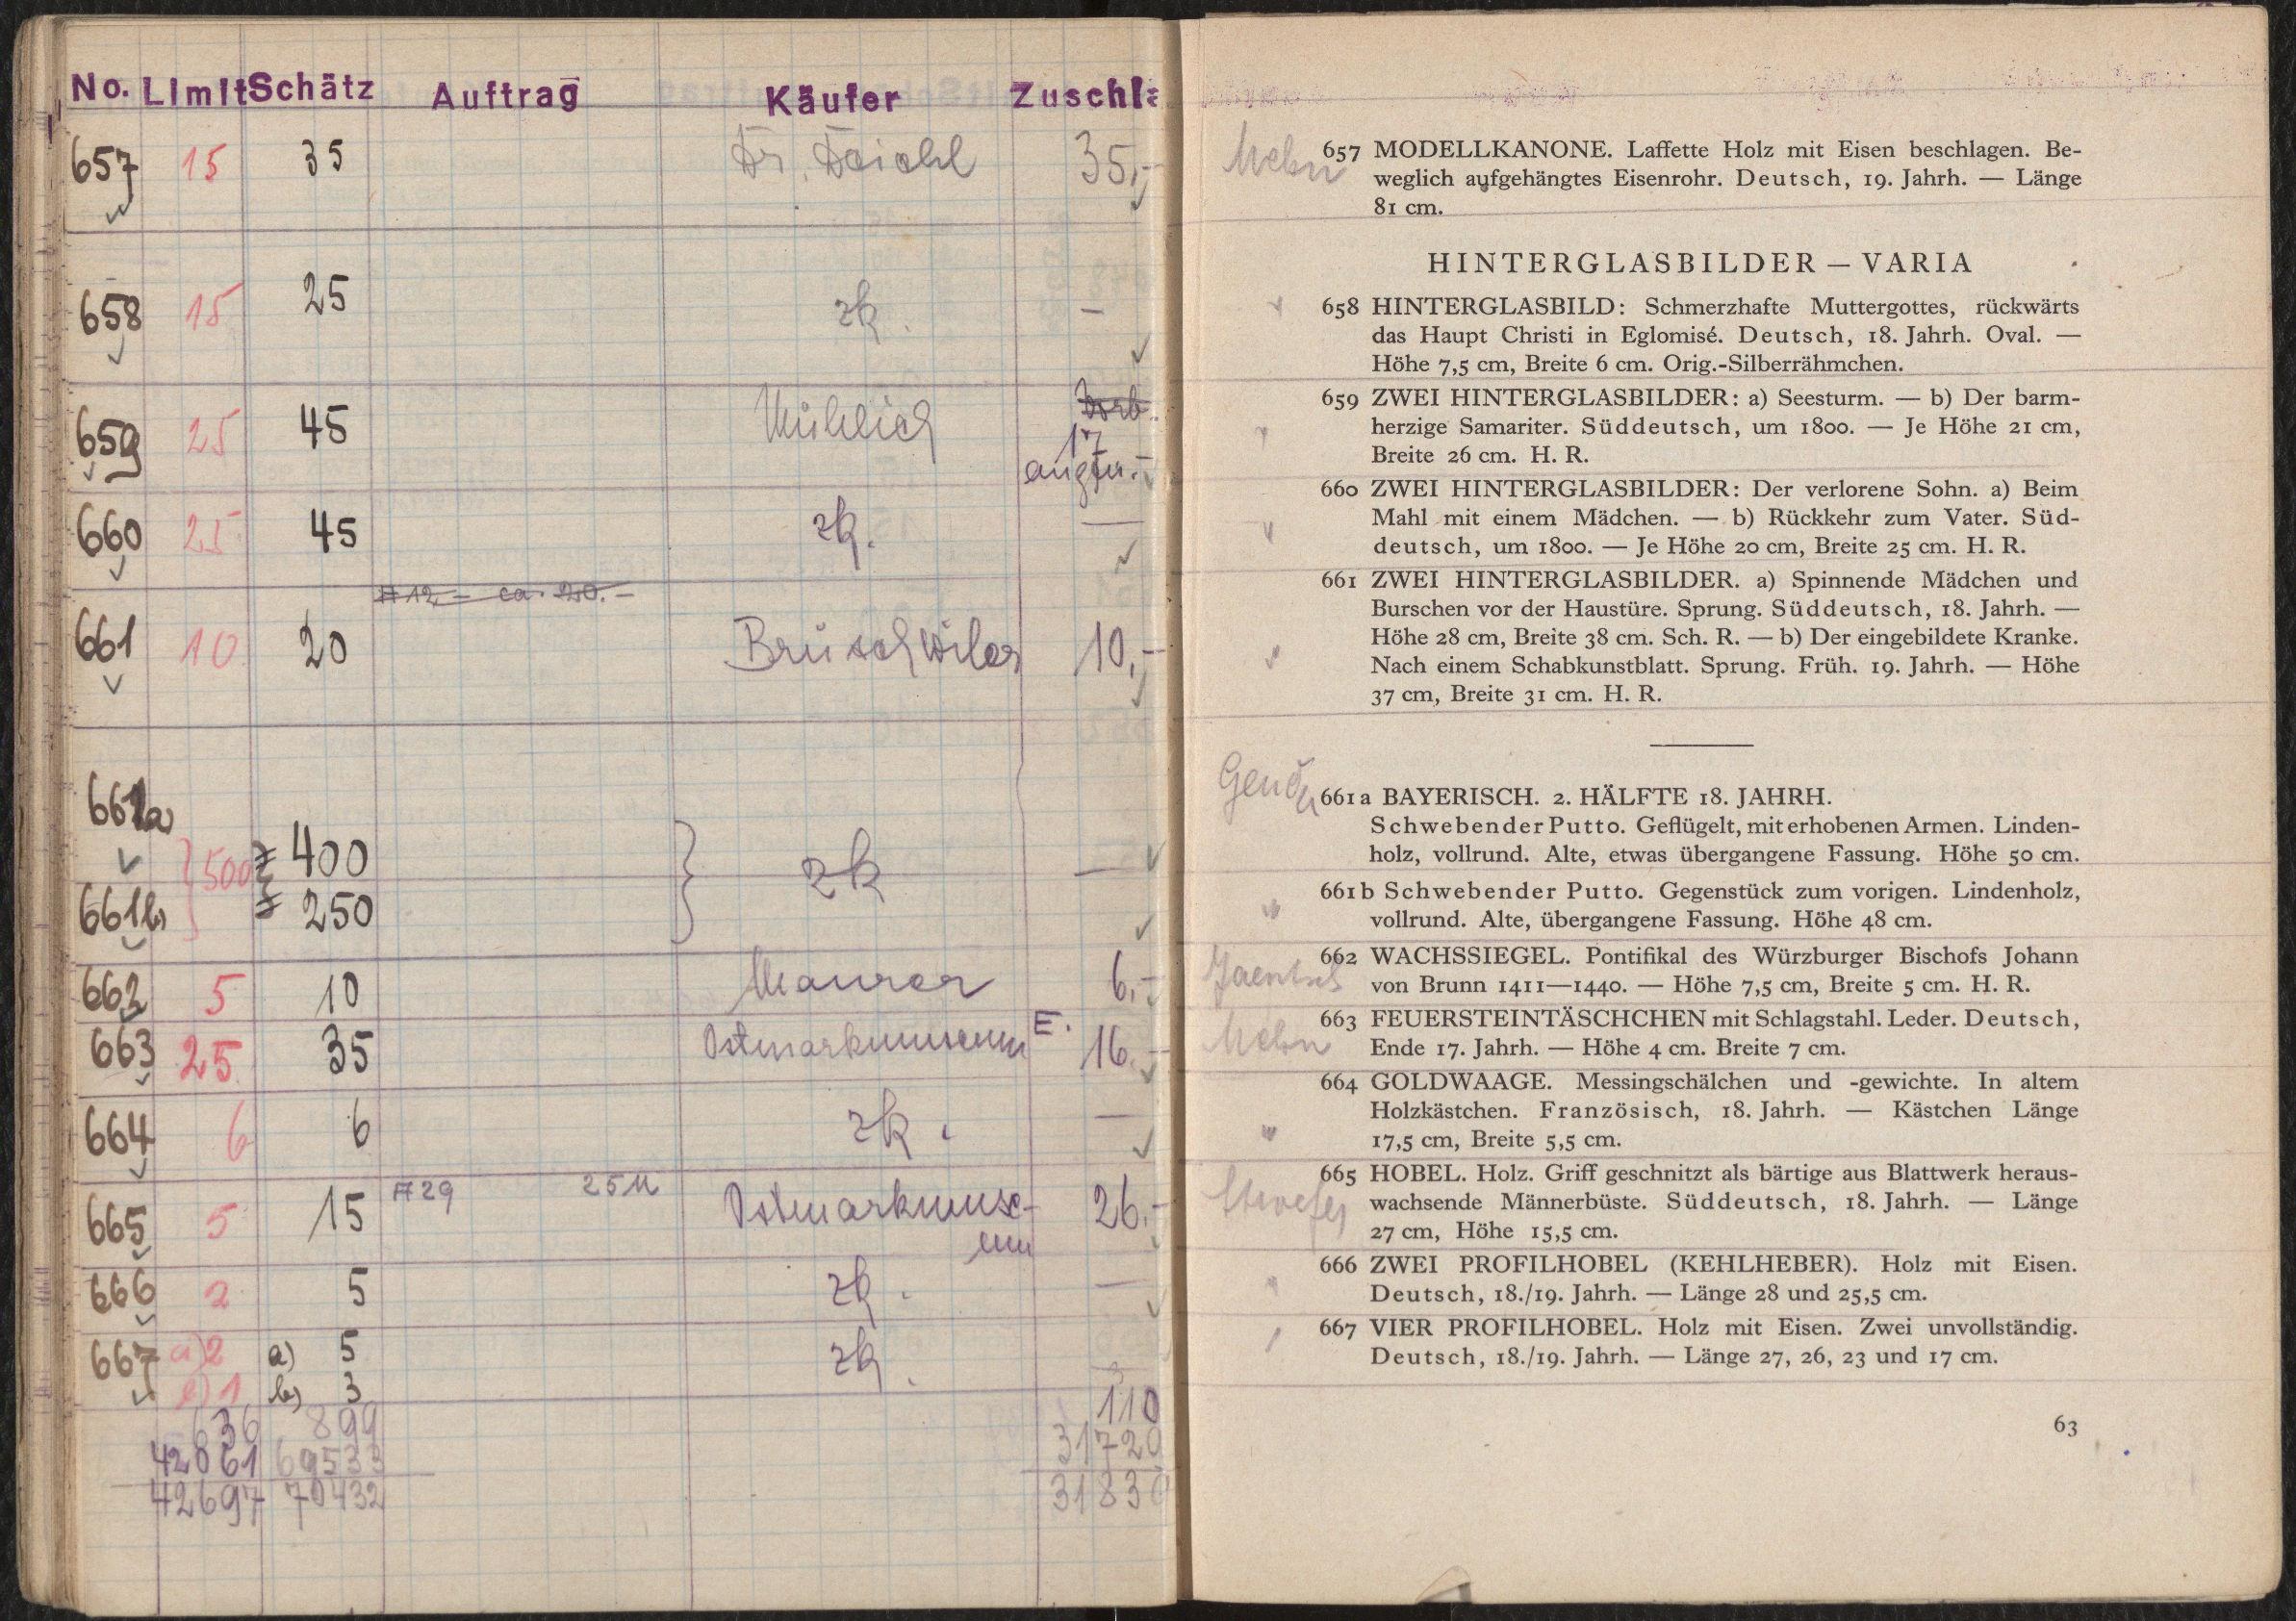 No. Limit Schätz Auftrag Käufer Zuschla
657 15 35 Dr. Deichl 35,-
658 15 25 zk. -
659 25 45 17
angen.-
660 25 45 zk. —
# 12,- ca. 20.-
661 10 20 Brüschwiler 10,-
661a
} 500 # 400 } zk —
661b # 250
662 5 10 Maurer 6,-
663 25 35 Ostmarkmuseum E. 16.-
664 6 6 zk. —
665 5 15 # 29 25 M Ostmarkmuse- 26.-
um
666 2 5 zk. —
667 a) 2 a) 5 zk. —
b) 1 b) 3
636 899 110
42061 69533 31720
42697 70432 31830
657 MODELLKANONE. Laffette Holz mit Eisen beschlagen. Be-
weglich aufgehängtes Eisenrohr. Deutsch, 19. Jahrh. — Länge
81 cm.
HINTERGLASBILDER — VARIA
658 HINTERGLASBILD: Schmerzhafte Muttergottes, rückwärts
das Haupt Christi in Eglomisé. Deutsch, 18. Jahrh. Oval. —
Höhe 7,5 cm, Breite 6 cm. Orig.-Silberrähmchen.
659 ZWEI HINTERGLASBILDER: a) Seesturm. — b) Der barm-
herzige Samariter. Süddeutsch, um 1800. — Je Höhe 21 cm,
Breite 26 cm. H. R.
660 ZWEI HINTERGLASBILDER: Der verlorene Sohn. a) Beim
Mahl mit einem Mädchen. — b) Rückkehr zum Vater. Süd-
deutsch, um 1800. — Je Höhe 20 cm, Breite 25 cm. H. R.
661 ZWEI HINTERGLASBILDER. a) Spinnende Mädchen und
Burschen vor der Haustüre. Sprung. Süddeutsch, 18. Jahrh. —
Höhe 28 cm, Breite 38 cm. Sch. R. — b) Der eingebildete Kranke.
Nach einem Schabkunstblatt. Sprung. Früh. 19. Jahrh. — Höhe
37 cm, Breite 31 cm. H. R.
661a BAYERISCH. 2. HÄLFTE 18. JAHRH.
Schwebender Putto. Geflügelt, mit erhobenen Armen. Linden-
holz, vollrund. Alte, etwas übergangene Fassung. Höhe 50 cm.
661b Schwebender Putto. Gegenstück zum vorigen. Lindenholz,
vollrund. Alte, übergangene Fassung. Höhe 48 cm.
662 WACHSSIEGEL. Pontifikal des Würzburger Bischofs Johann
von Brunn 1411—1440. — Höhe 7,5 cm, Breite 5 cm. H. R.
663 FEUERSTEINTÄSCHCHEN mit Schlagstahl. Leder. Deutsch,
Ende 17. Jahrh. — Höhe 4 cm. Breite 7 cm.
664 GOLDWAAGE. Messingschälchen und -gewichte. In altem
Holzkästchen. Französisch, 18. Jahrh. — Kästchen Länge
17,5 cm, Breite 5,5 cm.
665 HOBEL. Holz. Griff geschnitzt als bärtige aus Blattwerk heraus-
wachsende Männerbüste. Süddeutsch, 18. Jahrh. — Länge
27 cm, Höhe 15,5 cm.
666 ZWEI PROFILHOBEL (KEHLHEBER). Holz mit Eisen.
Deutsch, 18./19. Jahrh. — Länge 28 und 25,5 cm.
667 VIER PROFILHOBEL. Holz mit Eisen. Zwei unvollständig.
Deutsch, 18./19. Jahrh. — Länge 27, 26, 23 und 17 cm.
63